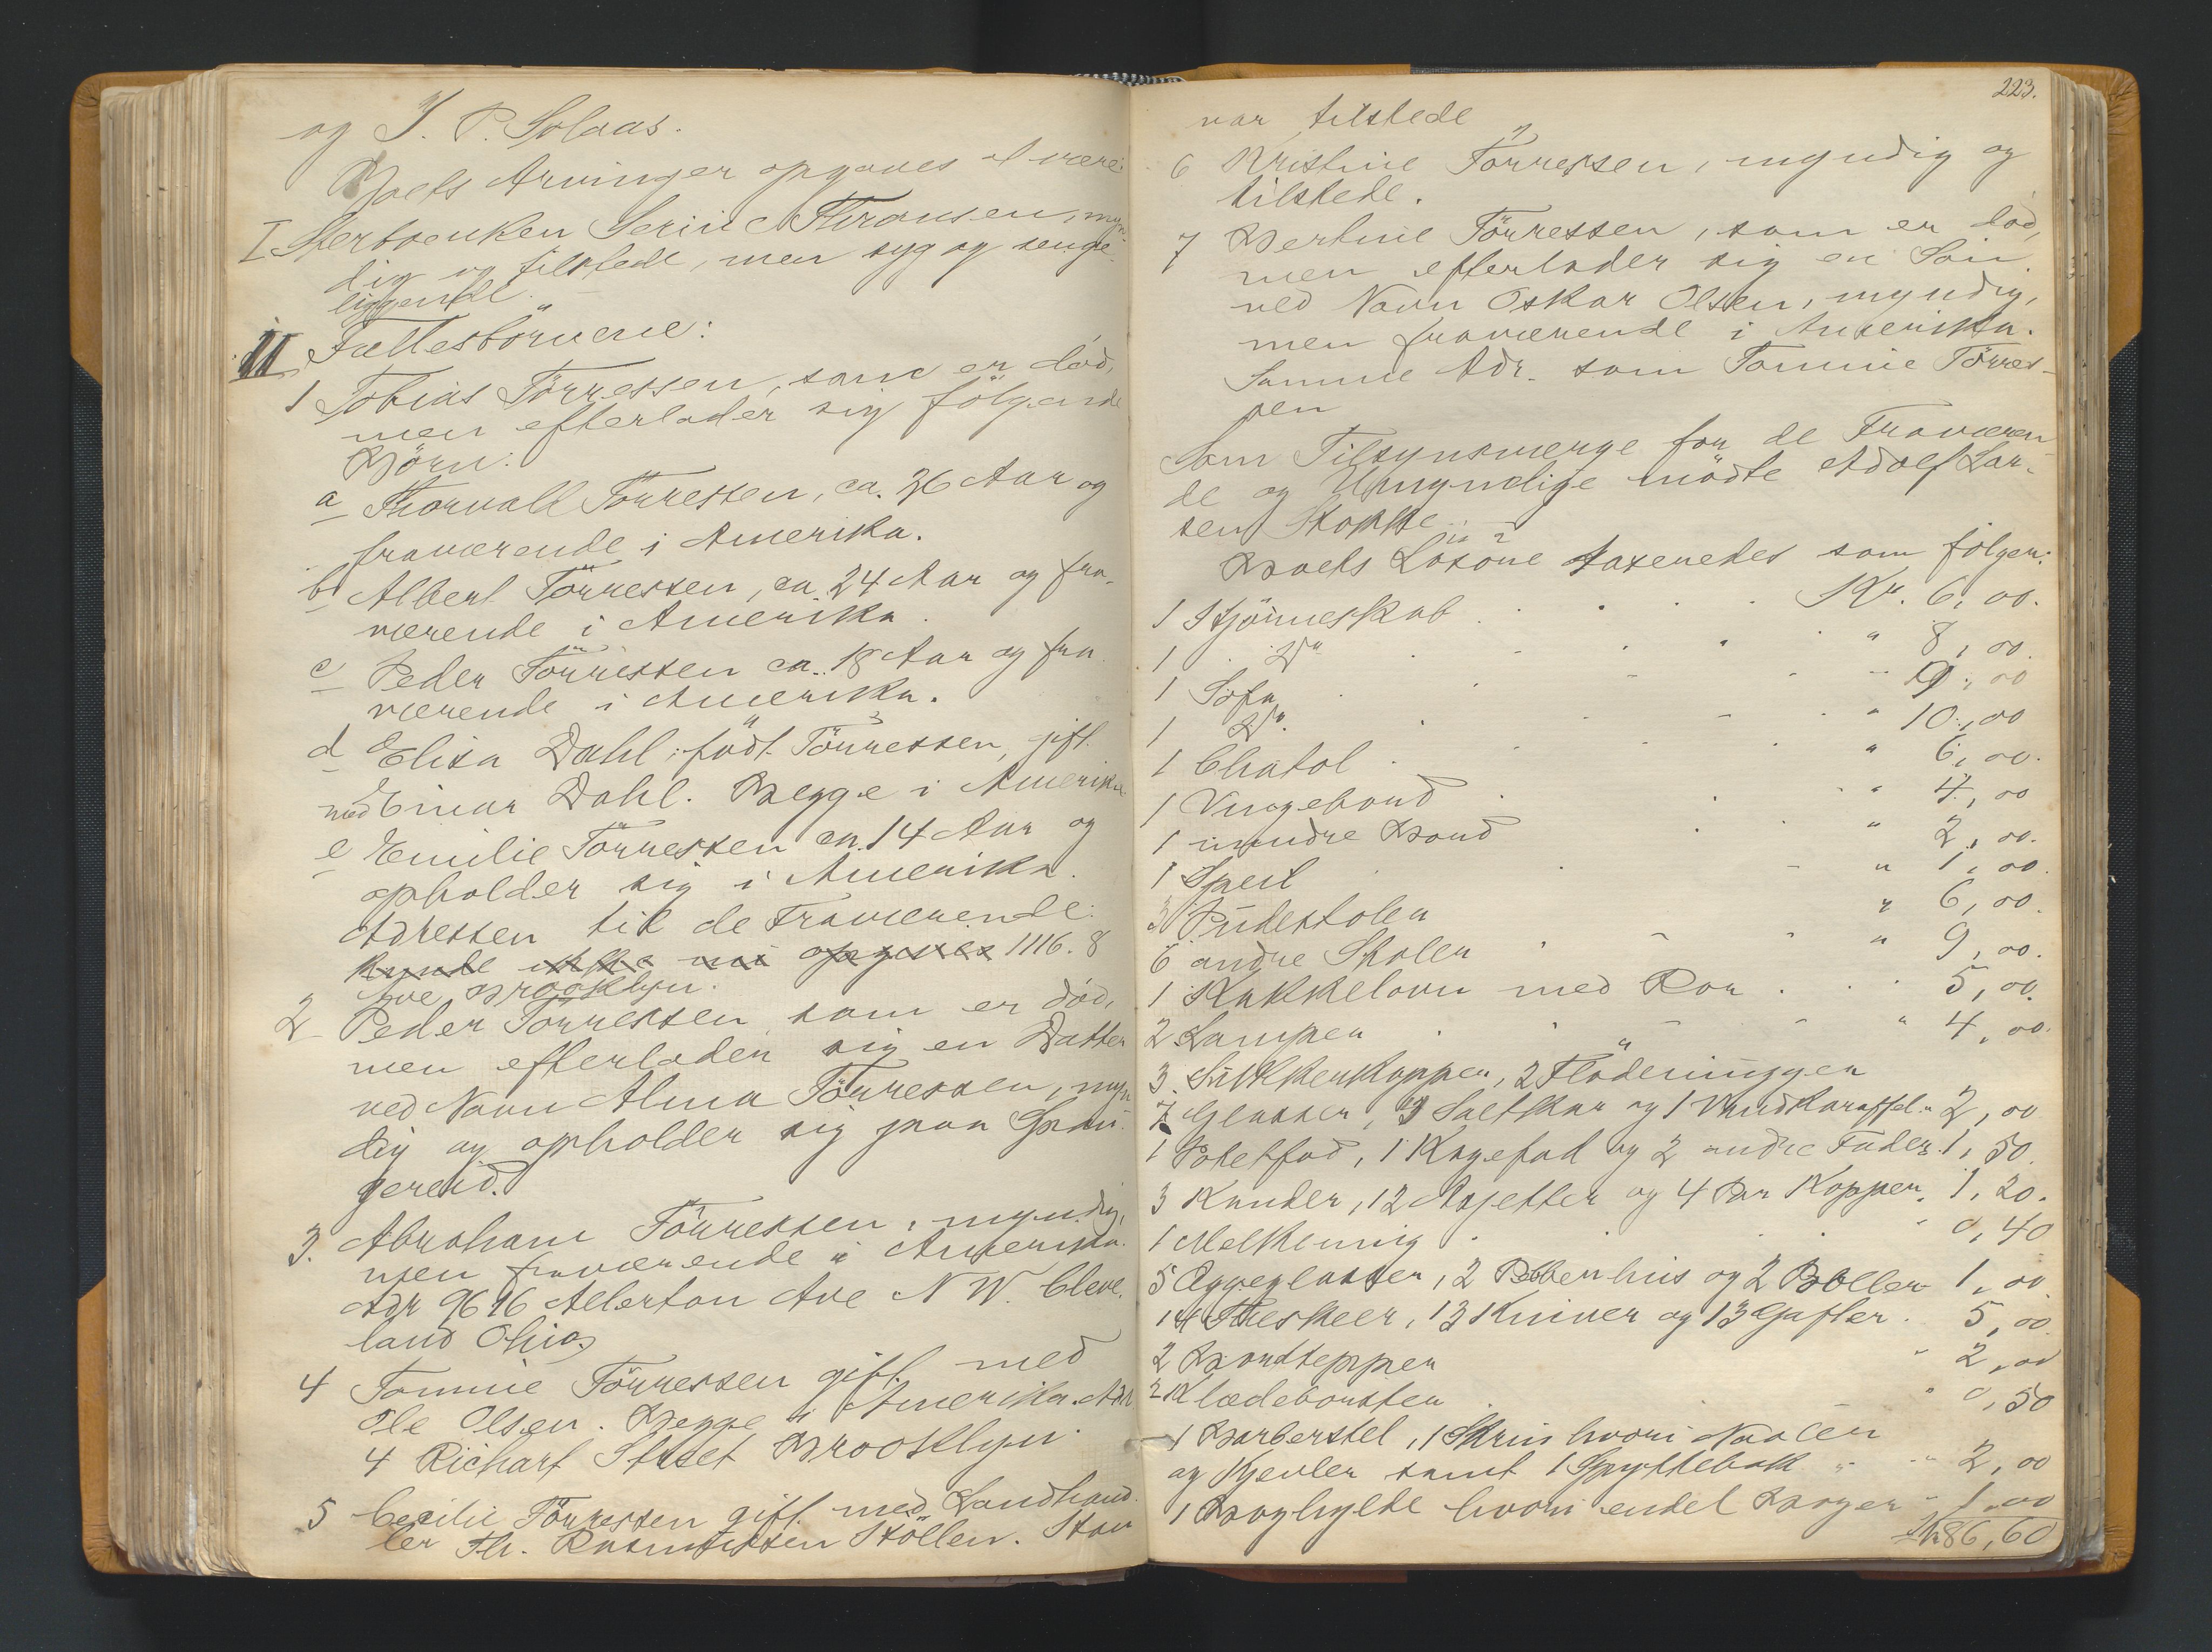 og I. P. Solaas.
Boets Arvinger opgaves at være:
I Sterboenken Serine Thransen, myn-
dig og tilstede, men syg og senge-
liggende.
II Fællesbörnene:
1 Tobias Törressen, som er död,
men efterlader sig fölgende
Börn:
a Thorvall Törressen, ca. 26 Aar og
fraværende i Amerika.
b Albert Törressen, ca. 24 Aar og fra-
værende i Amerika.
c Peder Törressen ca. 18 Aar og fra-
værende i Amerika.
d Elisa Dahl, födt Törressen, gift
med Einar Dahl. Begge i Amerika
e Emilie Törressen ca. 14 Aar og
opholder sig i Amerika.
Adressen til de Fraværende:
kunde ikke nu opgives 1116. 8
Ave Brooklyn.
2 Peder Törressen, som er död,
men efterlader sig en Datter
ved Navn Alma Törressen, myn-
dig og opholder sig paa Span-
gereid.
3. Abraham Törressen, myndig,
men fraværende i Amerika.
Adr 9616 Allerton Ave N W. Cleve-
land Ohio
4 Tomine Törressen gift med
Ole Olsen. Begge i Amerika. Adr
4 Richart Street Brooklyn.
5 Cecilie Törressen gift med Landhand-
ler Th. Rasmussen Stöllen. Hun
223.
var tilstede
6 Kristine Törressen, myndig og
tilstede.
7 Bertine Törressen, som er död,
men efterlader sig en Sön
ved Navn Oskar Olsen, myndig,
men fraværende i Amerika.
Samme Adr. som Tomine Törres-
sen
Som Tilsynsverge for de Fraværen-
de og Umyndige mödte Adolf Lar-
sen Stokke.
Boets Lösöre taxeredes som fölger:
1 Hjörneskab . . . . Kr. 6,00.
1 Do . . . . " 8,00.
1 Sofa . . . . " 9,00
1 Do. . . . . " 10,00
1 Chatol . . . . " 6,00.
1 Vingebord . . . " 4,00
1 mindre Bord . . " 2,00.
1 Speil . . . . " 1,00.
3 Pudestoler " 6,00.
6 andre Stoler . . . " 9,00.
1 Kakkelovn med Rör . . . 5,00.
2 Lamper . . . . " 4,00.
3 Sukkerkopper, 2 Flödemugger
7 Glasser, 3 Saltkar og 1 Vandkaraffel " 2,00
1 Potetfad, 1 Kagefad og 2 andre Fader. 1,50.
3 Kander, 12 Asjetter og 4 Par Kopper. 1,20.
1 Melkemug . . . " 0,40
5 Æggeglasser, 2 Pebberhus og 2 Boller 1,00.
14 Theskeer, 13 Kniver og 13 Gafler. 5,00.
2 Bordtepper " 2,00
2 Klædeborster . " 0,50
1 Barberstel, 1 Skrin hvori Naaler
og Kjevler samt 1 Spyttebak " " 2,00
1 Boghylde hvori endel Böger " 1,00
Kr 86,60